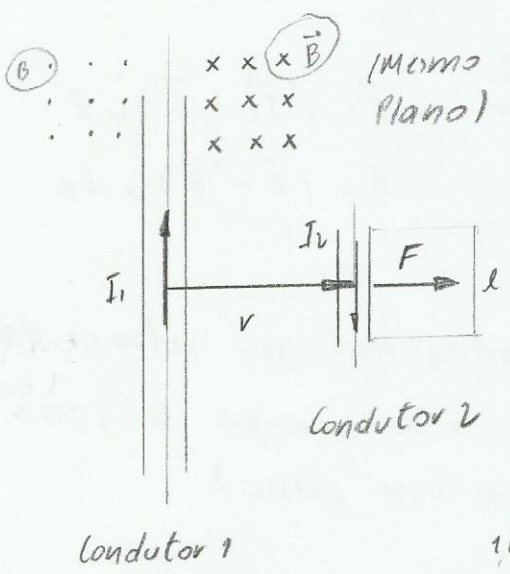 B
B
(Mesmo
Plano)
I₁
r
I₂
F
l
Condutor 2
Condutor 1